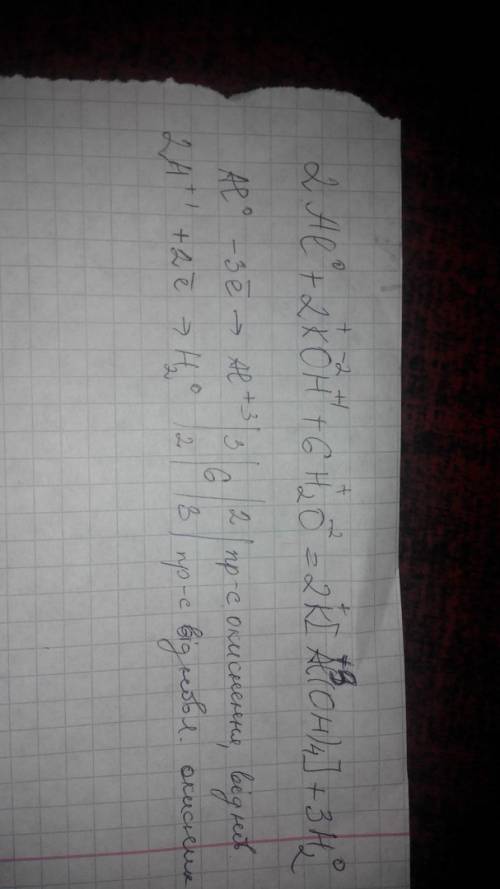 2Al⁰ + 2K⁺O⁻²H⁺¹ + 6H₂⁺O⁻² = 2K⁺[Al⁺³(OH)₄] + 3H₂⁰
Al⁰ - 3ē → Al⁺³ | 3 | 6 | 2 | пр-с окиснення, віднів.
2H⁺¹ + 2ē → H₂⁰ | 2 | | 3 | пр-с відновл. окисник